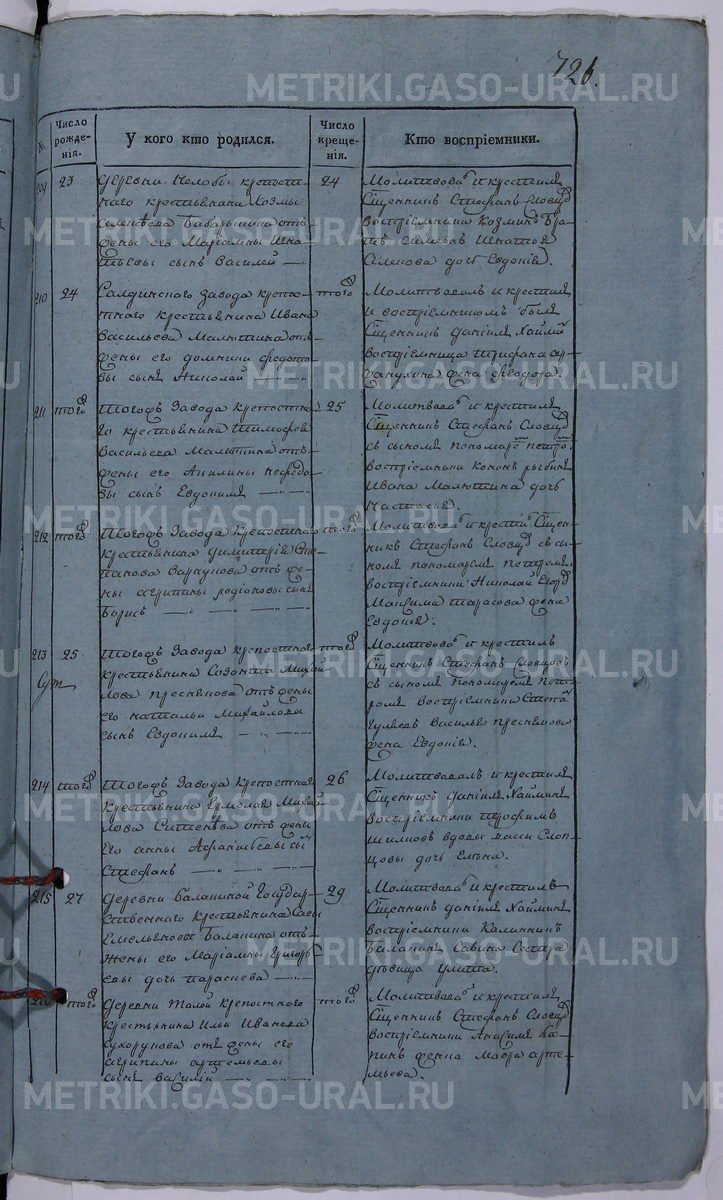 726.
№.
Число рожде-нія.
У кого кто родился.
Число креще-нія.
Кто воспріемники.
209 23
деревни крепост-
наго крестьянина Козмы
отъ
жены его Маріамны Игна
тьевы сынъ Василей
24
Молитвова и крестилъ
Сщенникъ Стефанъ Словцо
воспріемники Козминъ бра
Симеонъ Игнатья
Семенова дочь Евдокія.
210 24
Салдинскаго завода крепос-
тнаго крестьянина Ивана
Васильева Малыгина отъ
жены его домники федото
вы сынъ Николай
того
Молитвовалъ и крестилъ
и воспріемникомъ былъ
Сщенникъ даніилъ Хаймин
воспріемница
жена феодора.
211 того
Тогожъ завода крепостна
го крестьянина Тимофея
Васильева Малыгина отъ
жены его Акилины нефедо
вы сынъ Евдокимъ
25
Молитвова и крестилъ
Сщенникъ Стефанъ Словцо
съ сыномъ пономаре петро
воспріемники Кононъ
Ивана Малыгина дочь
Настасья.
212 того
Тогожъ завода крепостнаго
крестьянина димитрія
отъ же-
ны агрипины родіоновы сынъ
Борисъ
того
Молитвова и крести Сщен-
никъ Стефанъ Словцо съ сы
номъ пономаремъ петромъ
воспріемники Николай Егор
Максима тарасова жена
Евдокія.
213 25
Тогожъ завода крепостнаго
крестьянина Созонта Михай
лова преснякова отъ жены
его натальи Михайловы
сынъ Евдокимъ
того
Молитвова и крестилъ
Сщенникъ Стефанъ Словцовъ
съ сыномъ пономаремъ пет-
ромъ Воспріемники
Гуляевъ Василья преснякова
жена Евдокія.
214 того
Тогожъ завода крепостнаго
крестьянина Ермолая Михай
лова Ситнева отъ жены
его анны Афанасьевы сы
Стефанъ
26
Молитвовалъ и крестилъ
Сщенникъ даніилъ Хайминъ
Воспріемники трофимъ
Шиловъ вдовы Слоп-
цовы дочь Елена.
215 27
деревни Балакиной Государ-
ственнаго крестьянина
Емельянова Балакина отъ
жены его Маріамны Григорь
евы дочь параскева
29
Молитвова и крестилъ
Сщенникъ даніилъ Хайминъ
Воспріемники Калинникъ
Балакинъ Савина Сестра
девица Улита.
216 того
деревни Малой крепостнаго
крестьянина Ильи Иванова
Сухорукова отъ жены его
агрипины артемьевы
сынъ Василій
того
Молитвова и крестилъ
Сщенникъ Стефанъ Словцо
воспріемники
Мавра арте-
мьева.
METRIKI.GASO-URAL.RU